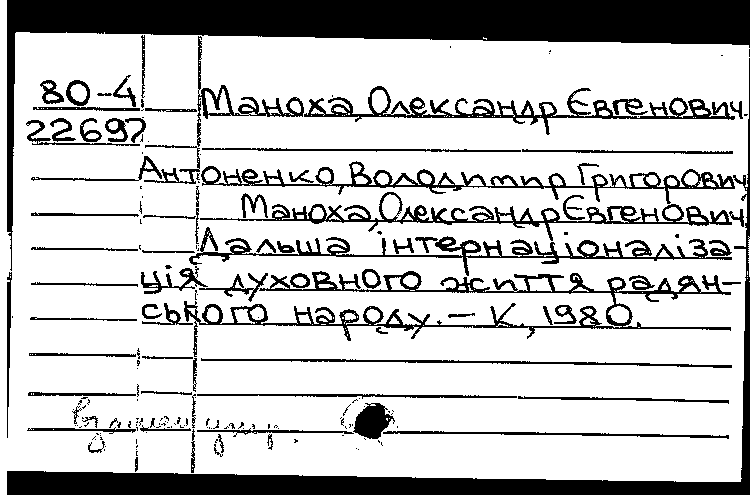 80-4 Маноха, Олександр Євгенович.
22697
Антоненко, Володимир Григорович,
Маноха, Олександр Євгенович
Дальша інтернаціоналіза-
ція духовного життя радян-
ського народу. — К., 1980.